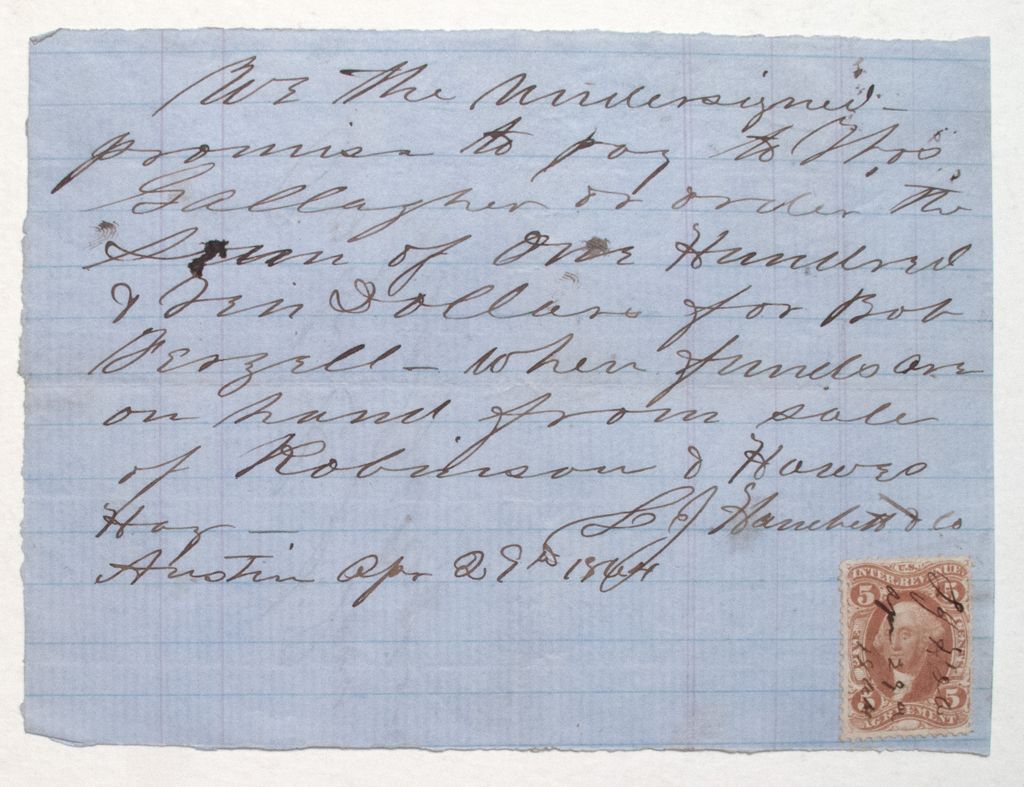 We the undersigned
promise to pay to Thos
Gallagher or order the
Sum of One Hundred
& Ten Dollars for Bob
Terzell – when funds are
on hand from sale
of Robinson & Hawes
Hay –
L J Hanchett & Co
Austin Apr 29th 1864
U.S.
INTER. REVENUE
5 5
FIVE CENTS
5 5
AGREEMENT
Apr 29
1864